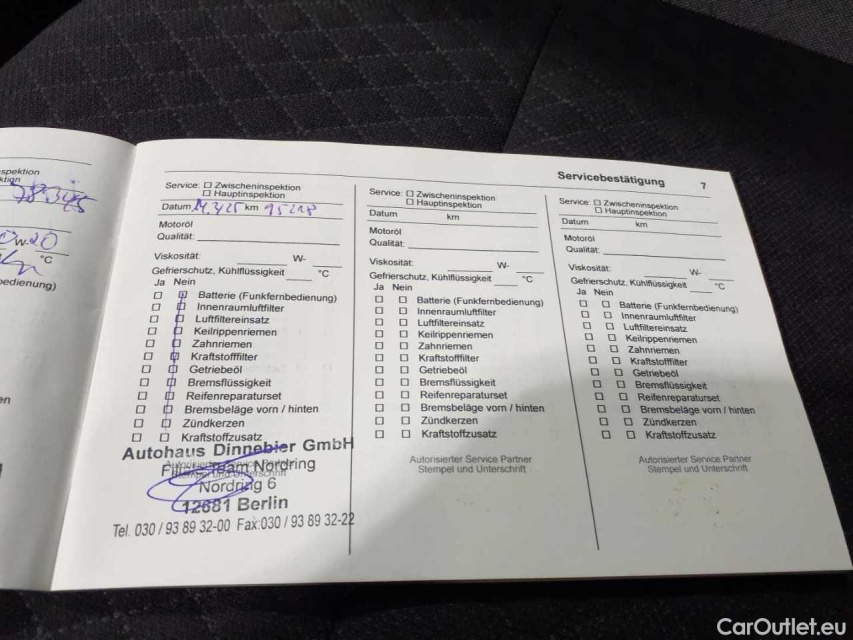 spektion
ktion
W-20
°C
edienung)
en
Servicebestätigung 7
Service: ☐ Zwischeninspektion
☐ Hauptinspektion
Datum km
Motoröl
Qualität:
Viskosität: W-
Gefrierschutz, Kühlflüssigkeit °C
Ja Nein
Batterie (Funkfernbedienung)
Innenraumluftfilter
Luftfiltereinsatz
Keilrippenriemen
Zahnriemen
Kraftstofffilter
Getriebeöl
Bremsflüssigkeit
Reifenreparaturset
Bremsbeläge vorn / hinten
Zündkerzen
Kraftstoffzusatz
Autohaus Dinnebier GmbH
Nordring
Nordring 6
12681 Berlin
Tel. 030 / 93 89 32-00 Fax:030 / 93 89 32-22
Service: ☐ Zwischeninspektion
☐ Hauptinspektion
Datum km
Motoröl
Qualität:
Viskosität: W-
Gefrierschutz, Kühlflüssigkeit °C
Ja Nein
Batterie (Funkfernbedienung)
Innenraumluftfilter
Luftfiltereinsatz
Keilrippenriemen
Zahnriemen
Kraftstofffilter
Getriebeöl
Bremsflüssigkeit
Reifenreparaturset
Bremsbeläge vorn / hinten
Zündkerzen
Kraftstoffzusatz
Autorisierter Service Partner
Stempel und Unterschrift
Service: ☐ Zwischeninspektion
☐ Hauptinspektion
Datum km
Motoröl
Qualität:
Viskosität: W-
Gefrierschutz, Kühlflüssigkeit °C
Ja Nein
Batterie (Funkfernbedienung)
Innenraumluftfilter
Luftfiltereinsatz
Keilrippenriemen
Zahnriemen
Kraftstofffilter
Getriebeöl
Bremsflüssigkeit
Reifenreparaturset
Bremsbeläge vorn / hinten
Zündkerzen
Kraftstoffzusatz
Autorisierter Service Partner
Stempel und Unterschrift
CarOutlet.eu